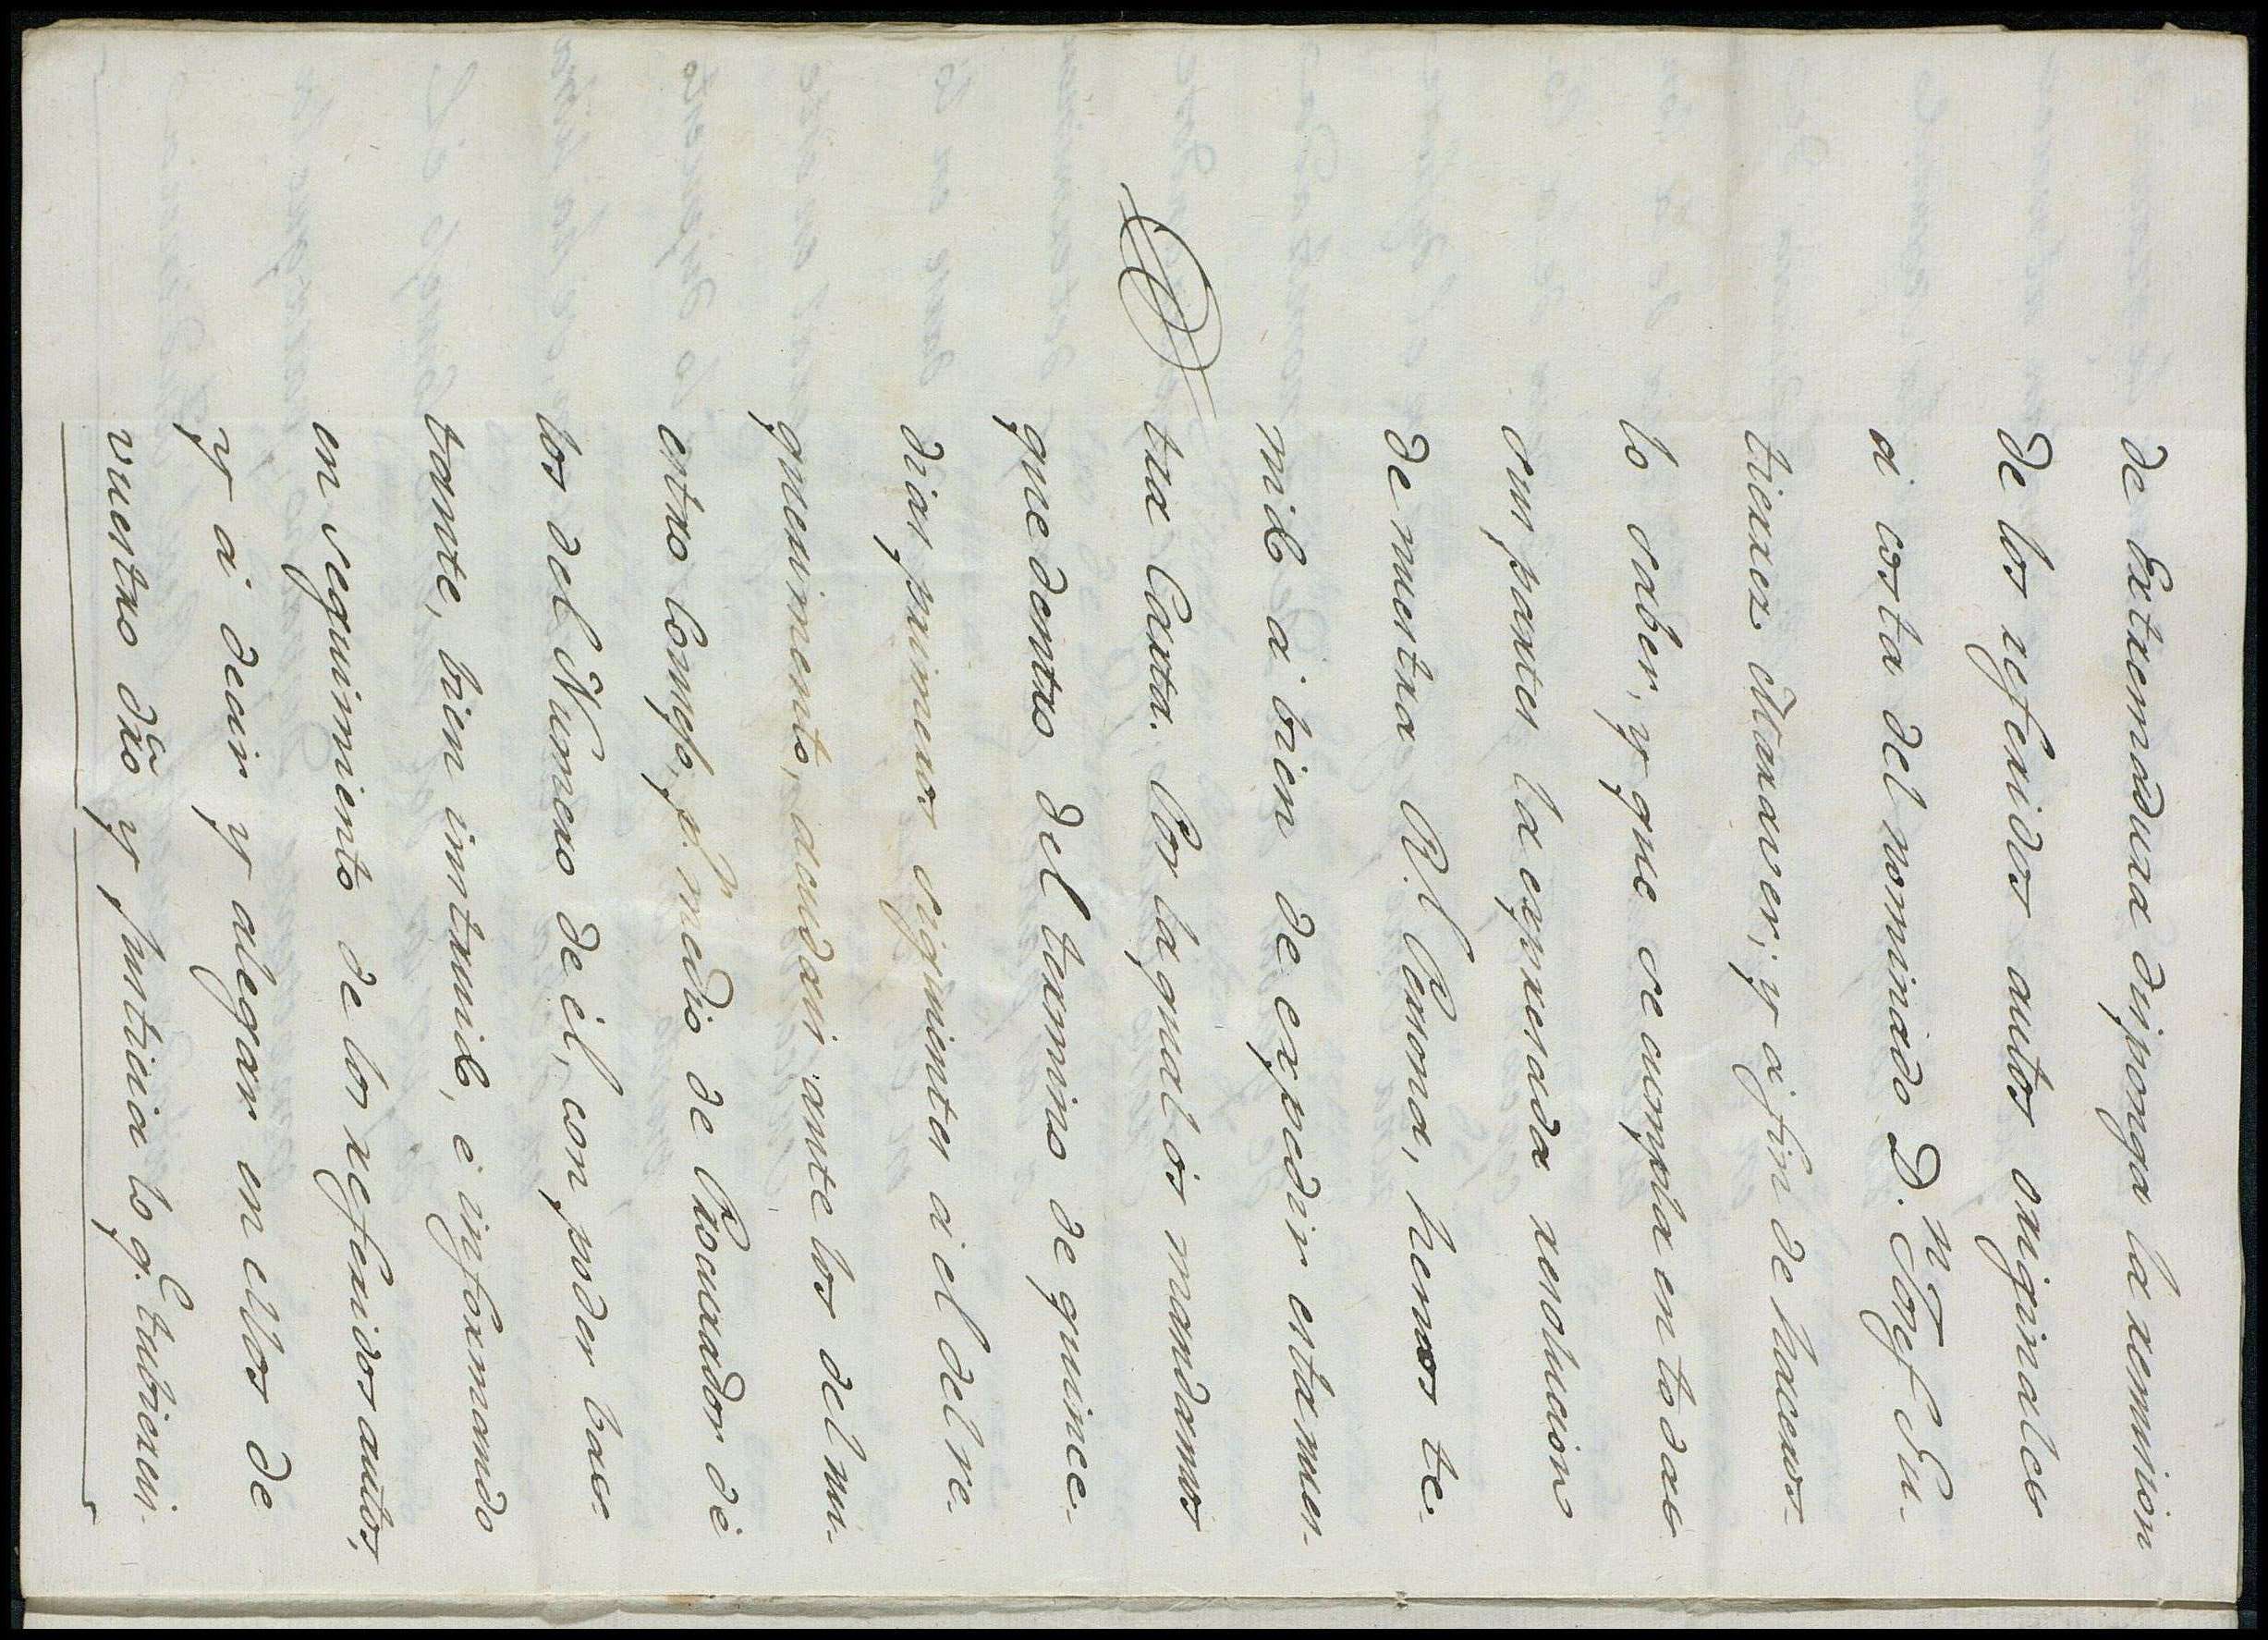 de Extremadura disponga la remision
de los referidos autos originales
á costa del nominado D.ⁿ Josef Gu-
tierrez Manaser; y á fin de haceros-
lo saber, y que se cumpla en todas
sus partes la expresada resolucion
de nuestra R.l Persona, hemos te-
nido á bien de expedir esta nues-
tra Carta. Por la qual os mandamos
que dentro del termino de quince-
dias primeros siguientes á el del re-
querimiento, acudais ante los del nu-
estro Consejo, p.r medio de Procurador de
los del Numero de él, con poder bas-
tante, bien instruido, é informando
en seguimiento de los referidos autos,
y á decir y alegar en ellos de
vuestro dr̃o y Justicia lo q.e tubiereis.